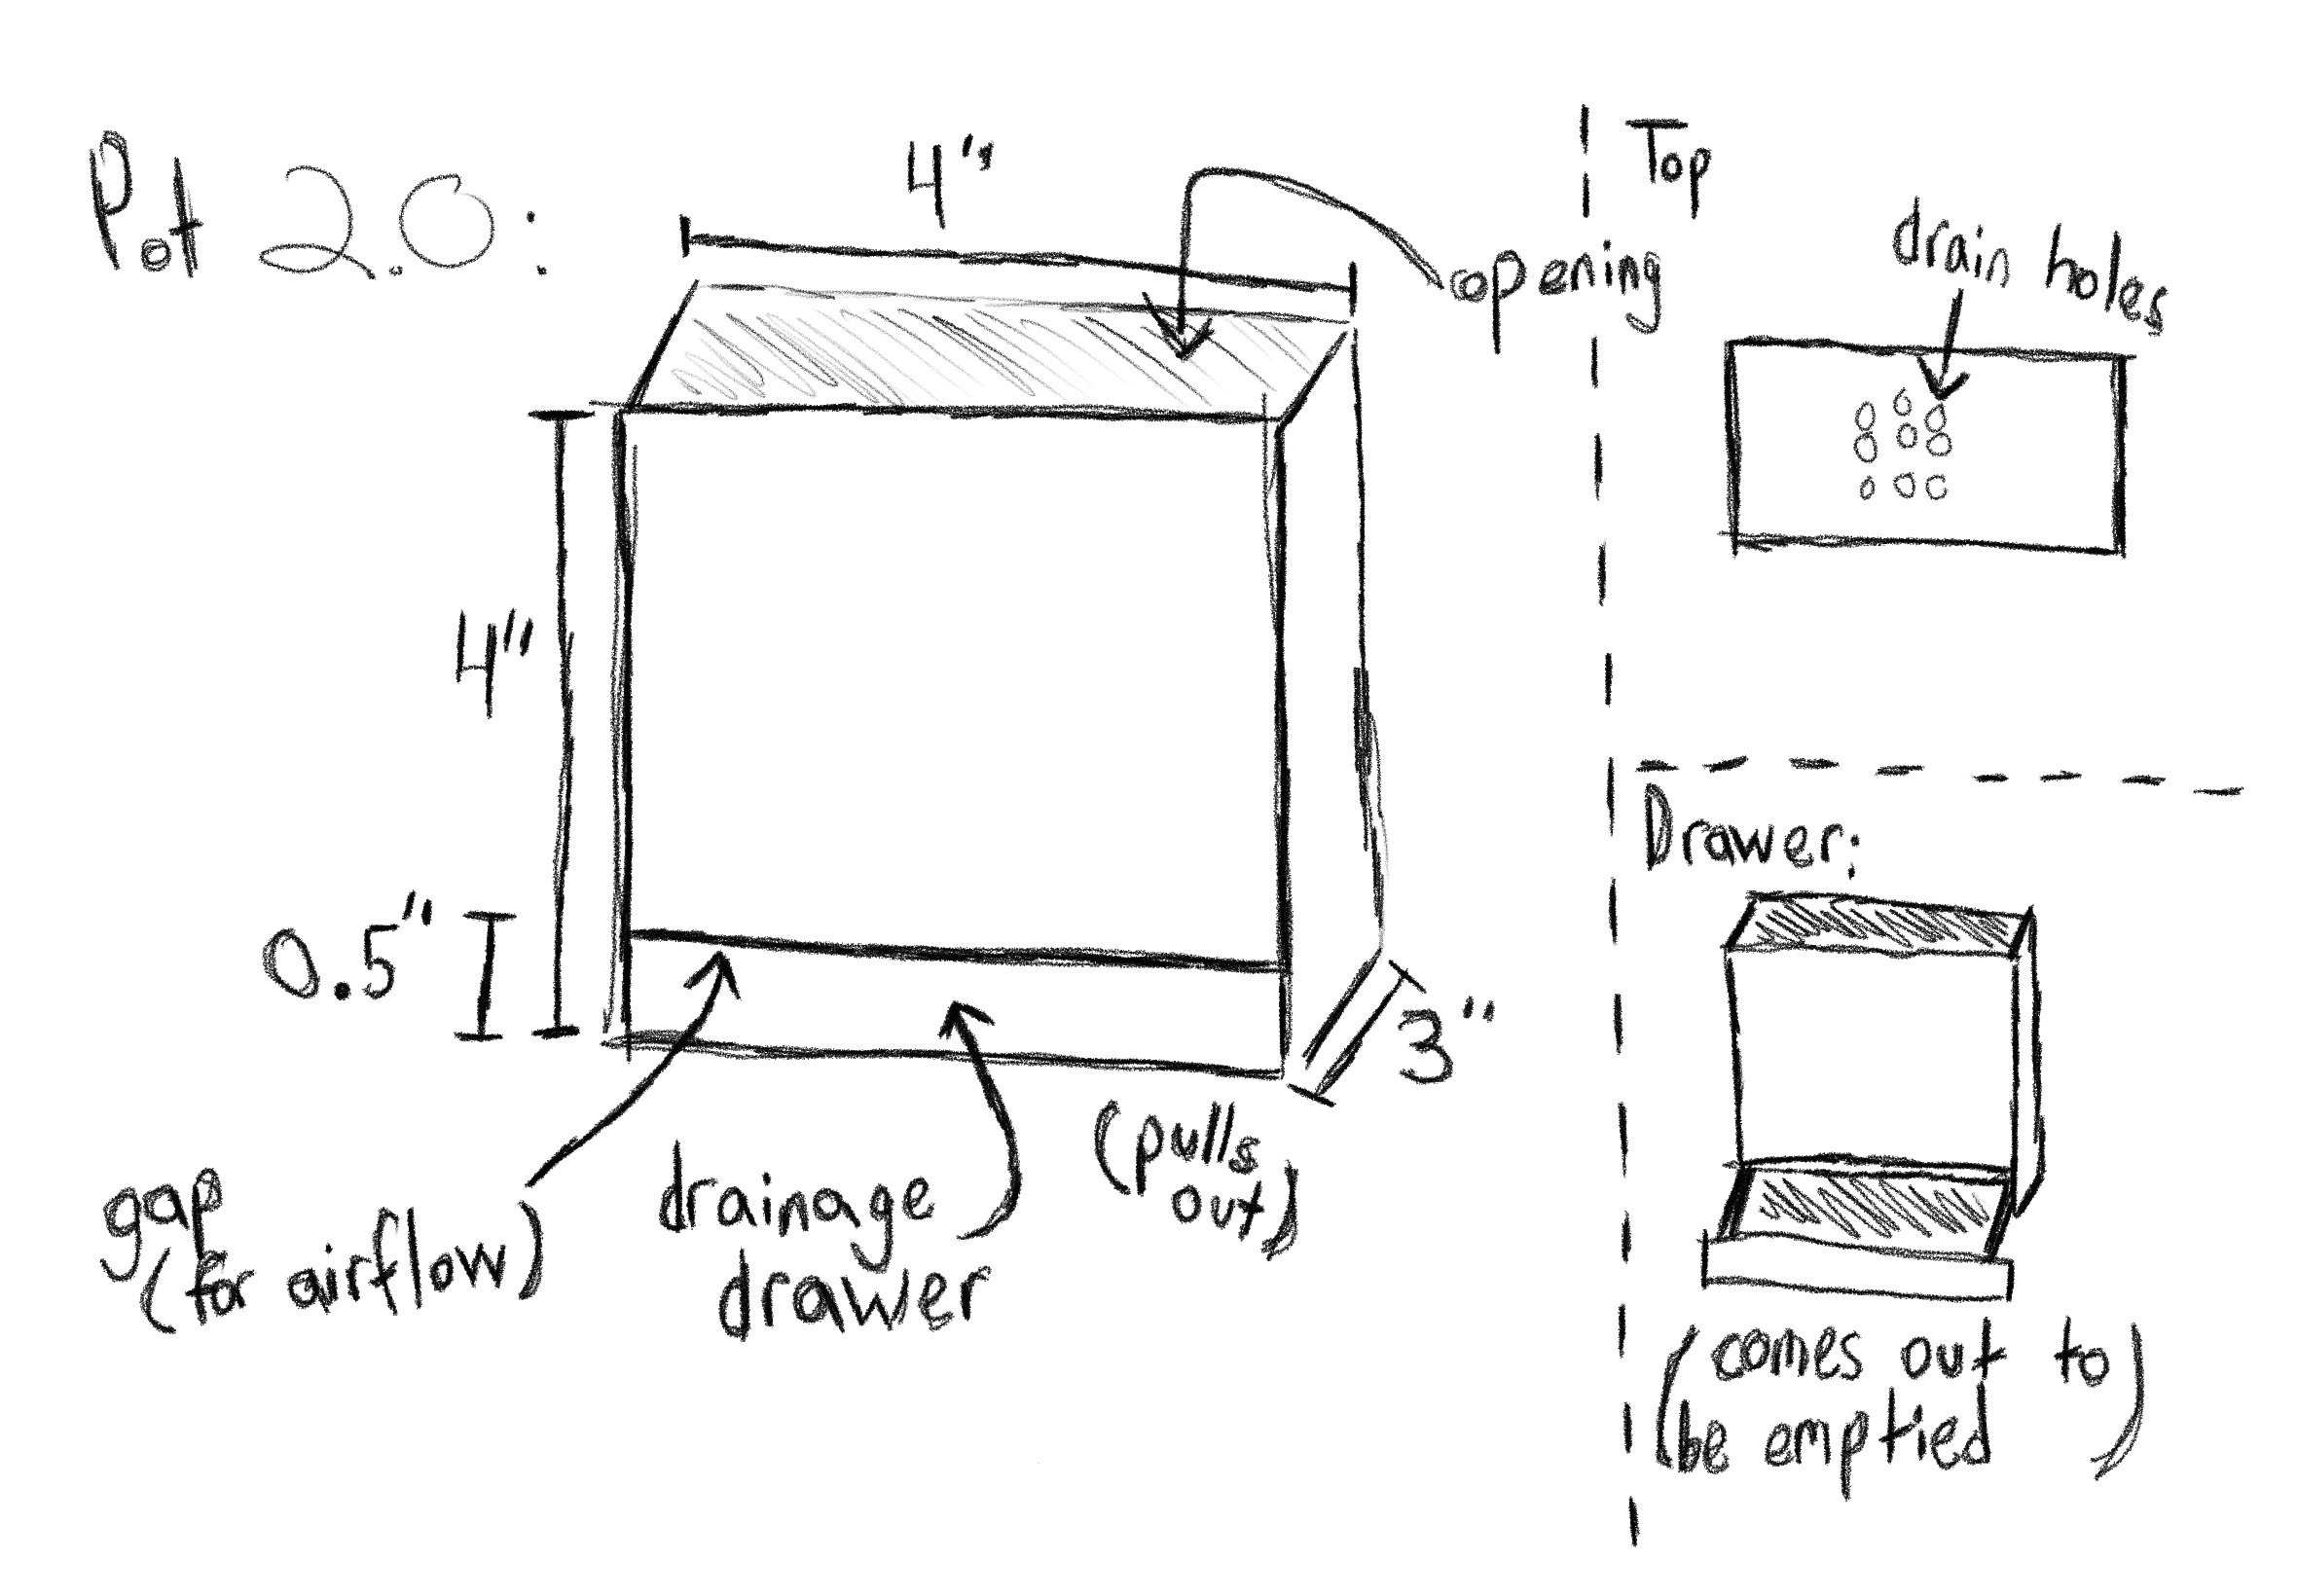 Pot 2.0:
4"
opening
4"
0.5"
3"
gap
(for airflow)
drainage
drawer
(pulls
out)
Top
drain holes
Drawer:
(comes out to
be emptied)